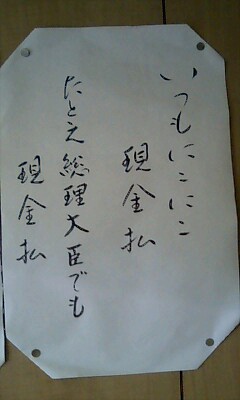 いつもにこにこ
現金払
たとえ総理大臣でも
現金払